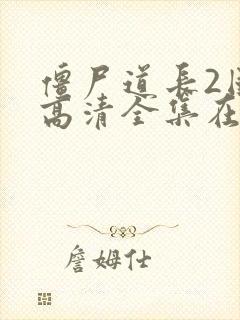 僵尸道长2
高清全集在
詹姆仕